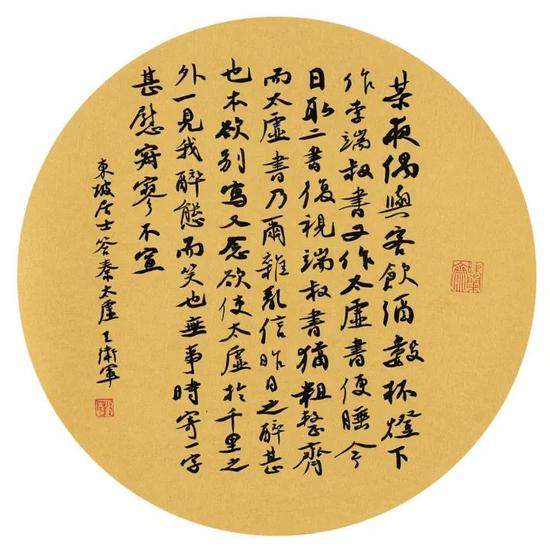 某夜偶與客飲酒數杯燈下
作李端叔書又作太虛書便睡今
日取二書復視端叔書猶粗整齊
而太虛書乃爾雜亂信昨日之醉甚
也本欲別寫又念欲使太虛於千里之
外一見我醉態而笑也無事時寄一字
甚慰寂寥不宣
東坡居士答秦太虛 王衛軍